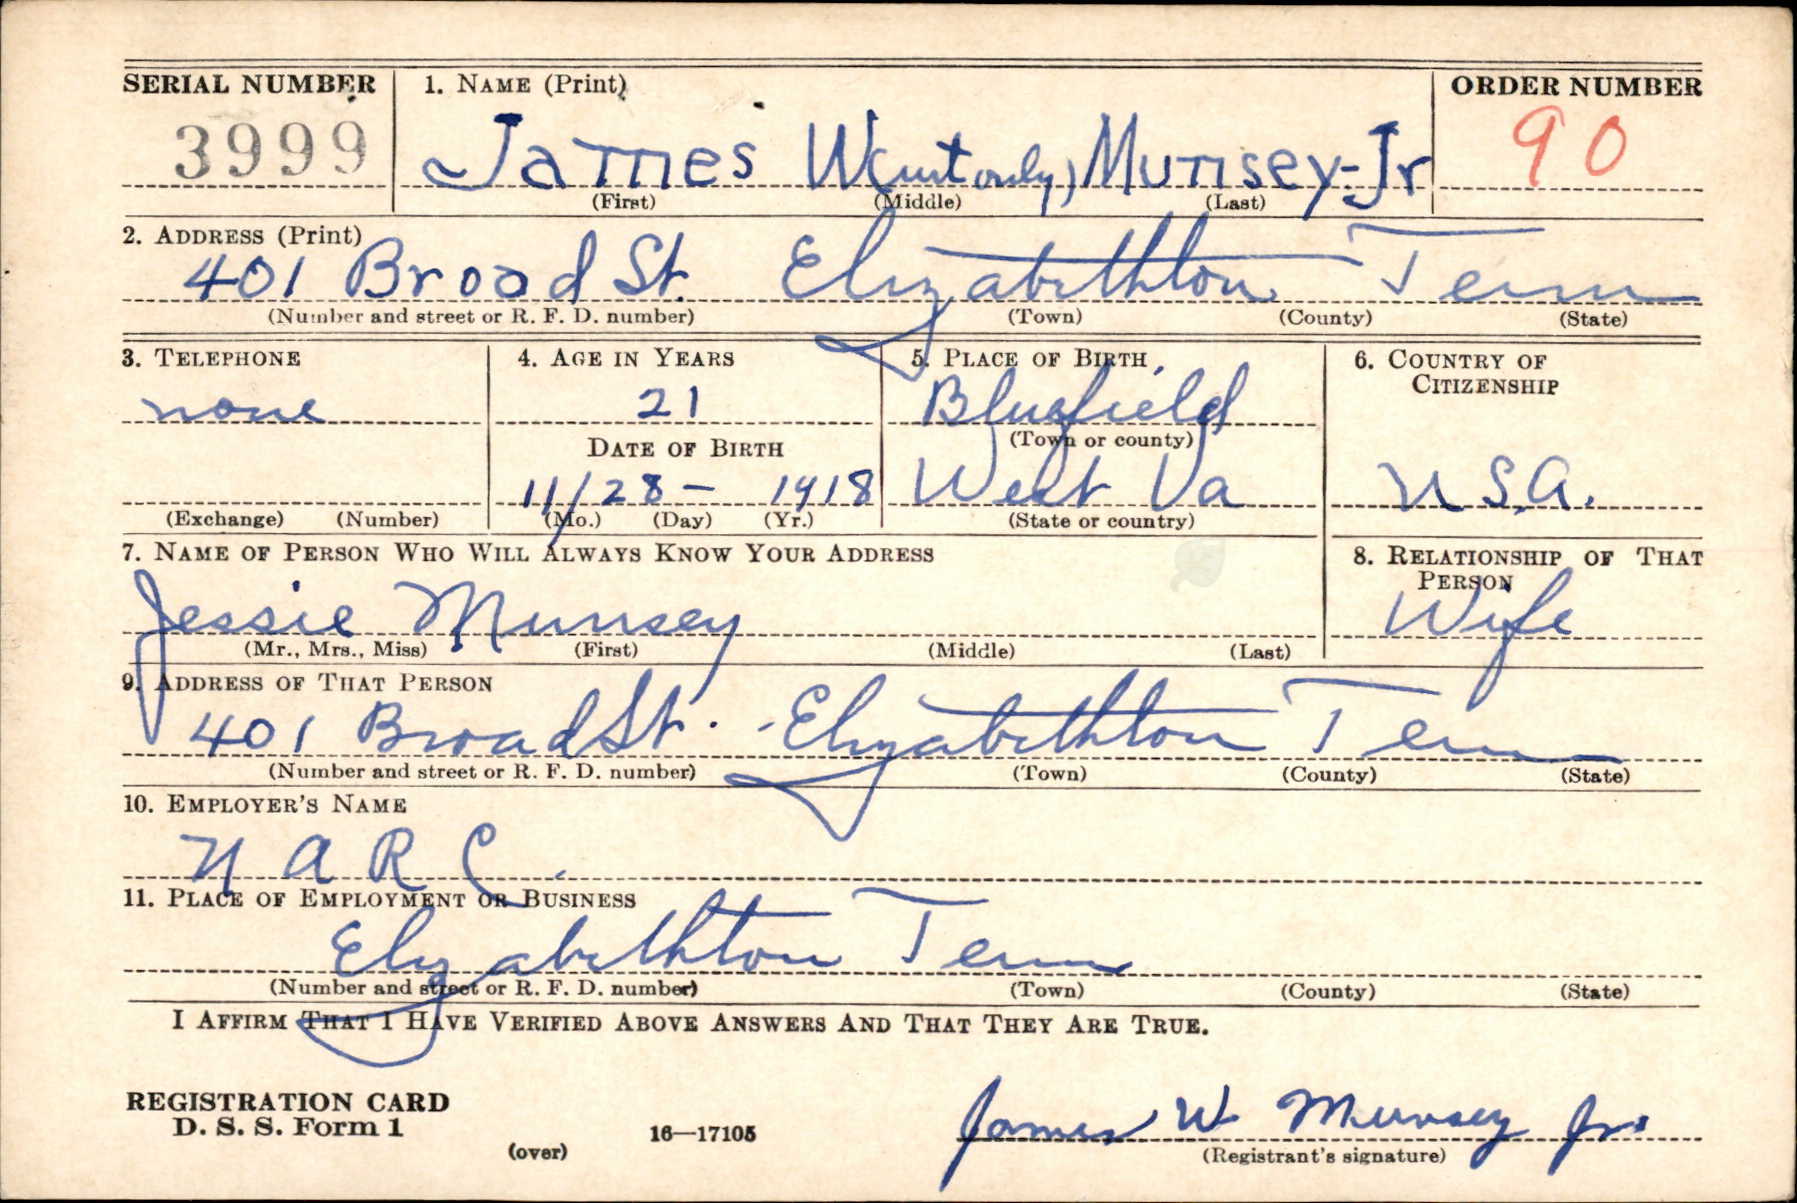 SERIAL NUMBER 1. NAME (Print) ORDER NUMBER
3999 James W(init only) Munsey-Jr 90
(First) (Middle) (Last)
2. ADDRESS (Print)
401 Broad St. Elizabethton Tenn
(Number and street or R. F. D. number) (Town) (County) (State)
3. TELEPHONE 4. AGE IN YEARS 5. PLACE OF BIRTH 6. COUNTRY OF CITIZENSHIP
none 21 Bluefield
DATE OF BIRTH (Town or county)
11/28- 1918 West Va U.S.A.
(Exchange) (Number) (Mo.) (Day) (Yr.) (State or country)
7. NAME OF PERSON WHO WILL ALWAYS KNOW YOUR ADDRESS 8. RELATIONSHIP OF THAT PERSON
Jessie Munsey Wife
(Mr., Mrs., Miss) (First) (Middle) (Last)
9. ADDRESS OF THAT PERSON
401 Broad St. Elizabethton Tenn
(Number and street or R. F. D. number) (Town) (County) (State)
10. EMPLOYER'S NAME
N A R C.
11. PLACE OF EMPLOYMENT OR BUSINESS
Elizabethton Tenn
(Number and street or R. F. D. number) (Town) (County) (State)
I AFFIRM THAT I HAVE VERIFIED ABOVE ANSWERS AND THAT THEY ARE TRUE.
REGISTRATION CARD
D. S. S. Form 1 16—17105 James W Munsey Jr.
(over) (Registrant's signature)